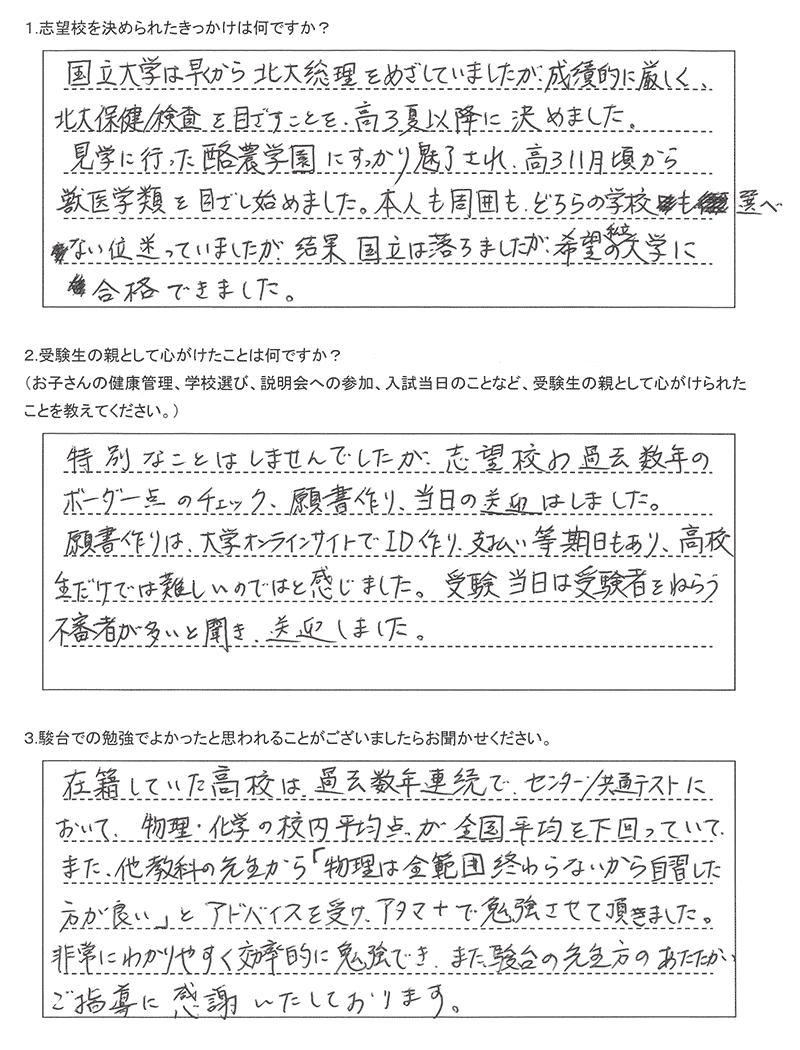 1.志望校を決められたきっかけは何ですか？
国立大学は早くから北大総理をめざしていましたが、成績的に厳しく、
北大保健/検査を目ざすことを、高3夏以降に決めました。
見学に行った酪農学園にすっかり魅了され、高3 11月頃から
獣医学類を目ざし始めました。本人も周囲も、どちらの学校も選べ
ない位迷っていましたが、結果国立は落ちましたが、希望の大学に
合格できました。
2.受験生の親として心がけたことは何ですか？
（お子さんの健康管理、学校選び、説明会への参加、入試当日のことなど、受験生の親として心がけられた
ことを教えてください。）
特別なことはしませんでしたが、志望校の過去数年の
ボーダー点のチェック、願書作り、当日の送迎はしました。
願書作りは、大学オンラインサイトでID作り、支払い等期日もあり、高校
生だけでは難しいのではと感じました。受験当日は受験者をねらう
不審者が多いと聞き、送迎しました。
3.駿台での勉強でよかったと思われることがございましたらお聞かせください。
在籍していた高校は、過去数年連続で、センター/共通テストに
おいて、物理・化学の校内平均点が全国平均を下回っていて、
また、他教科の先生から「物理は全範囲終わらないから自習した
方が良い」とアドバイスを受け、アタマ＋で勉強させて頂きました。
非常にわかりやすく効率的に勉強でき、また、駿台の先生方のあたたかい
ご指導に感謝いたしております。